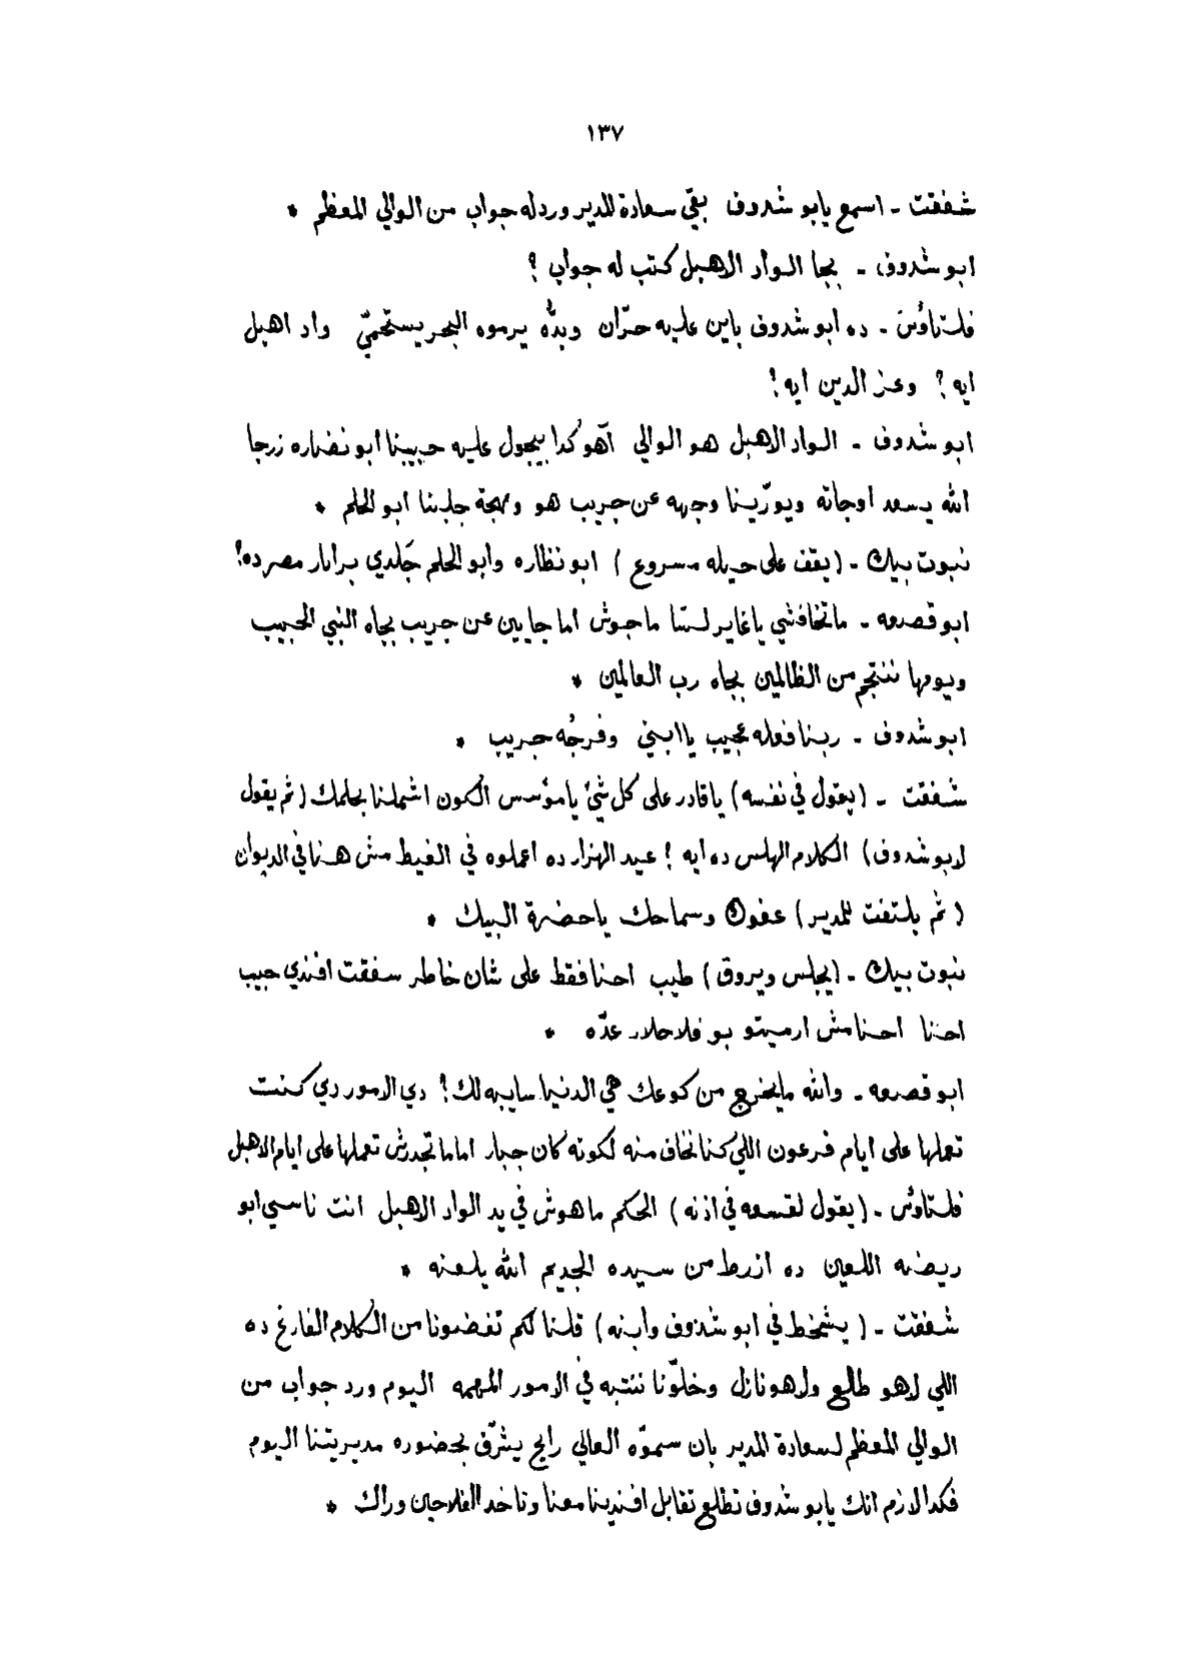 ١٣٧
شفقت - اسمع يابو شدوف بقى سعادة المدير وردله جواب من الوالي المعظم *
ابو شدوف - بجا الواد الاهبل كتب له جواب ؟
فلتاؤس - ده ابو شدوف باين عليه حرّان وبدُّه يرموه البحر يستحميّ واد اهبل
ايه ؟ وعز الدين ايه !
ابو شدوف - الواد الاهبل هو الوالي آهو كدا بيجول عليه حبيبنا ابو نضاره زرجا
الله يسعد اوجاته ويورّينا وجهه عن جريب هو ومهجة جلبنا ابو الحلم *
نبوت بيك - (يقف على حيله مسروع) ابو نظاره وابو الحلم جَلدي برابار مصر ده !
ابو قصعه - ماتخافشي ياغاير لسّا ماجوش اما جايين عن جريب بجاه النبي الحبيب
ويومها ننتجم من الظالمين بجاه رب العالمين *
ابو شدوف - ربنا فعله عجيب يا ابني وفرجُه جريب *
شفقت - (يقول في نفسه) يا قادر على كل شئ يا مؤسس الكون اشملنا بحلمك (ثم يقول
لابو شدوف) الكلام الهلس ده ايه ! عيد الهزار ده اعملوه في الغيط مش هنا في الديوان
(ثم يلتفت للمدير) عفوك وسماحك ياحضرة البيك *
نبوت بيك - (يجلس ويروق) طيب احنا فقط على شان خاطر سفقت افندي جبيب
احنا احنا مش ارميتو بو فلاحلار عدّه *
ابو قصعه - والله مايخرج من كوعك هي الدنيا سايبه لك ! دي الامور دي كنت
تعملها على ايام فرعون اللي كنا نخاف منه لكونه كان جبار اما ما تجدرش تعملها على ايام الاهبل
فلتاوُس - (يقول لقسعه في اذنه) الحكم ماهوش في يد الواد الاهبل انت ناسي ابو
ريضه اللعين ده ازرط من سيده الجديم الله يلعنه *
شفقت - (يشخط في ابو شدوف وابنه) قلنا لكم تفضونا من الكلام الفارغ ده
اللي لاهو طالع ولاهو نازل وخلّونا ننتبه في الامور المهمه اليوم ورد جواب من
الوالي المعظم لسعادة المدير بان سموّه العالي رايح يشرّف بحضوره مديريتنا اليوم
فكدا لازم انك يابو شدوف تطلع تقابل افندينا معنا وتاخد الفلاحين وراك *